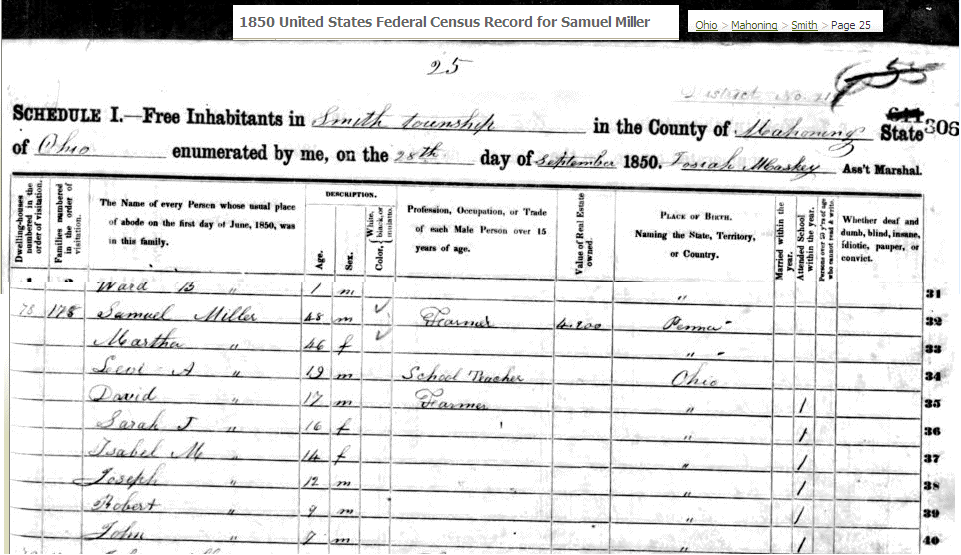 1850 United States Federal Census Record for Samuel Miller
Ohio > Mahoning > Smith > Page 25
25
District No.
SCHEDULE I.—Free Inhabitants in Smith township in the County of Mahoning State 306
of Ohio enumerated by me, on the 28th day of September 1850. Josiah Maskey Ass't Marshal.
Dwelling-houses numbered in the order of visitation.
Families numbered in the order of visitation.
The Name of every Person whose usual place of abode on the first day of June, 1850, was in this family.
DESCRIPTION.
Age.
Sex.
Color, { White, black, or mulatto.
Profession, Occupation, or Trade of each Male Person over 15 years of age.
Value of Real Estate owned.
PLACE OF BIRTH. Naming the State, Territory, or Country.
Married within the year.
Attended School within the year.
Persons over 20 y'rs of age who cannot read & write.
Whether deaf and dumb, blind, insane, idiotic, pauper, or convict.
Ward B " 1 m " 31
78 178 Samuel Miller 48 m Farmer 4200 Penna 32
Martha " 46 f " 33
Levi A " 19 m School Teacher Ohio 34
David " 17 m Farmer " / 35
Sarah J " 16 f " / 36
Isabel M " 14 f " / 37
Joseph " 12 m " / 38
Robert " 9 m " / 39
John " 7 m / 40